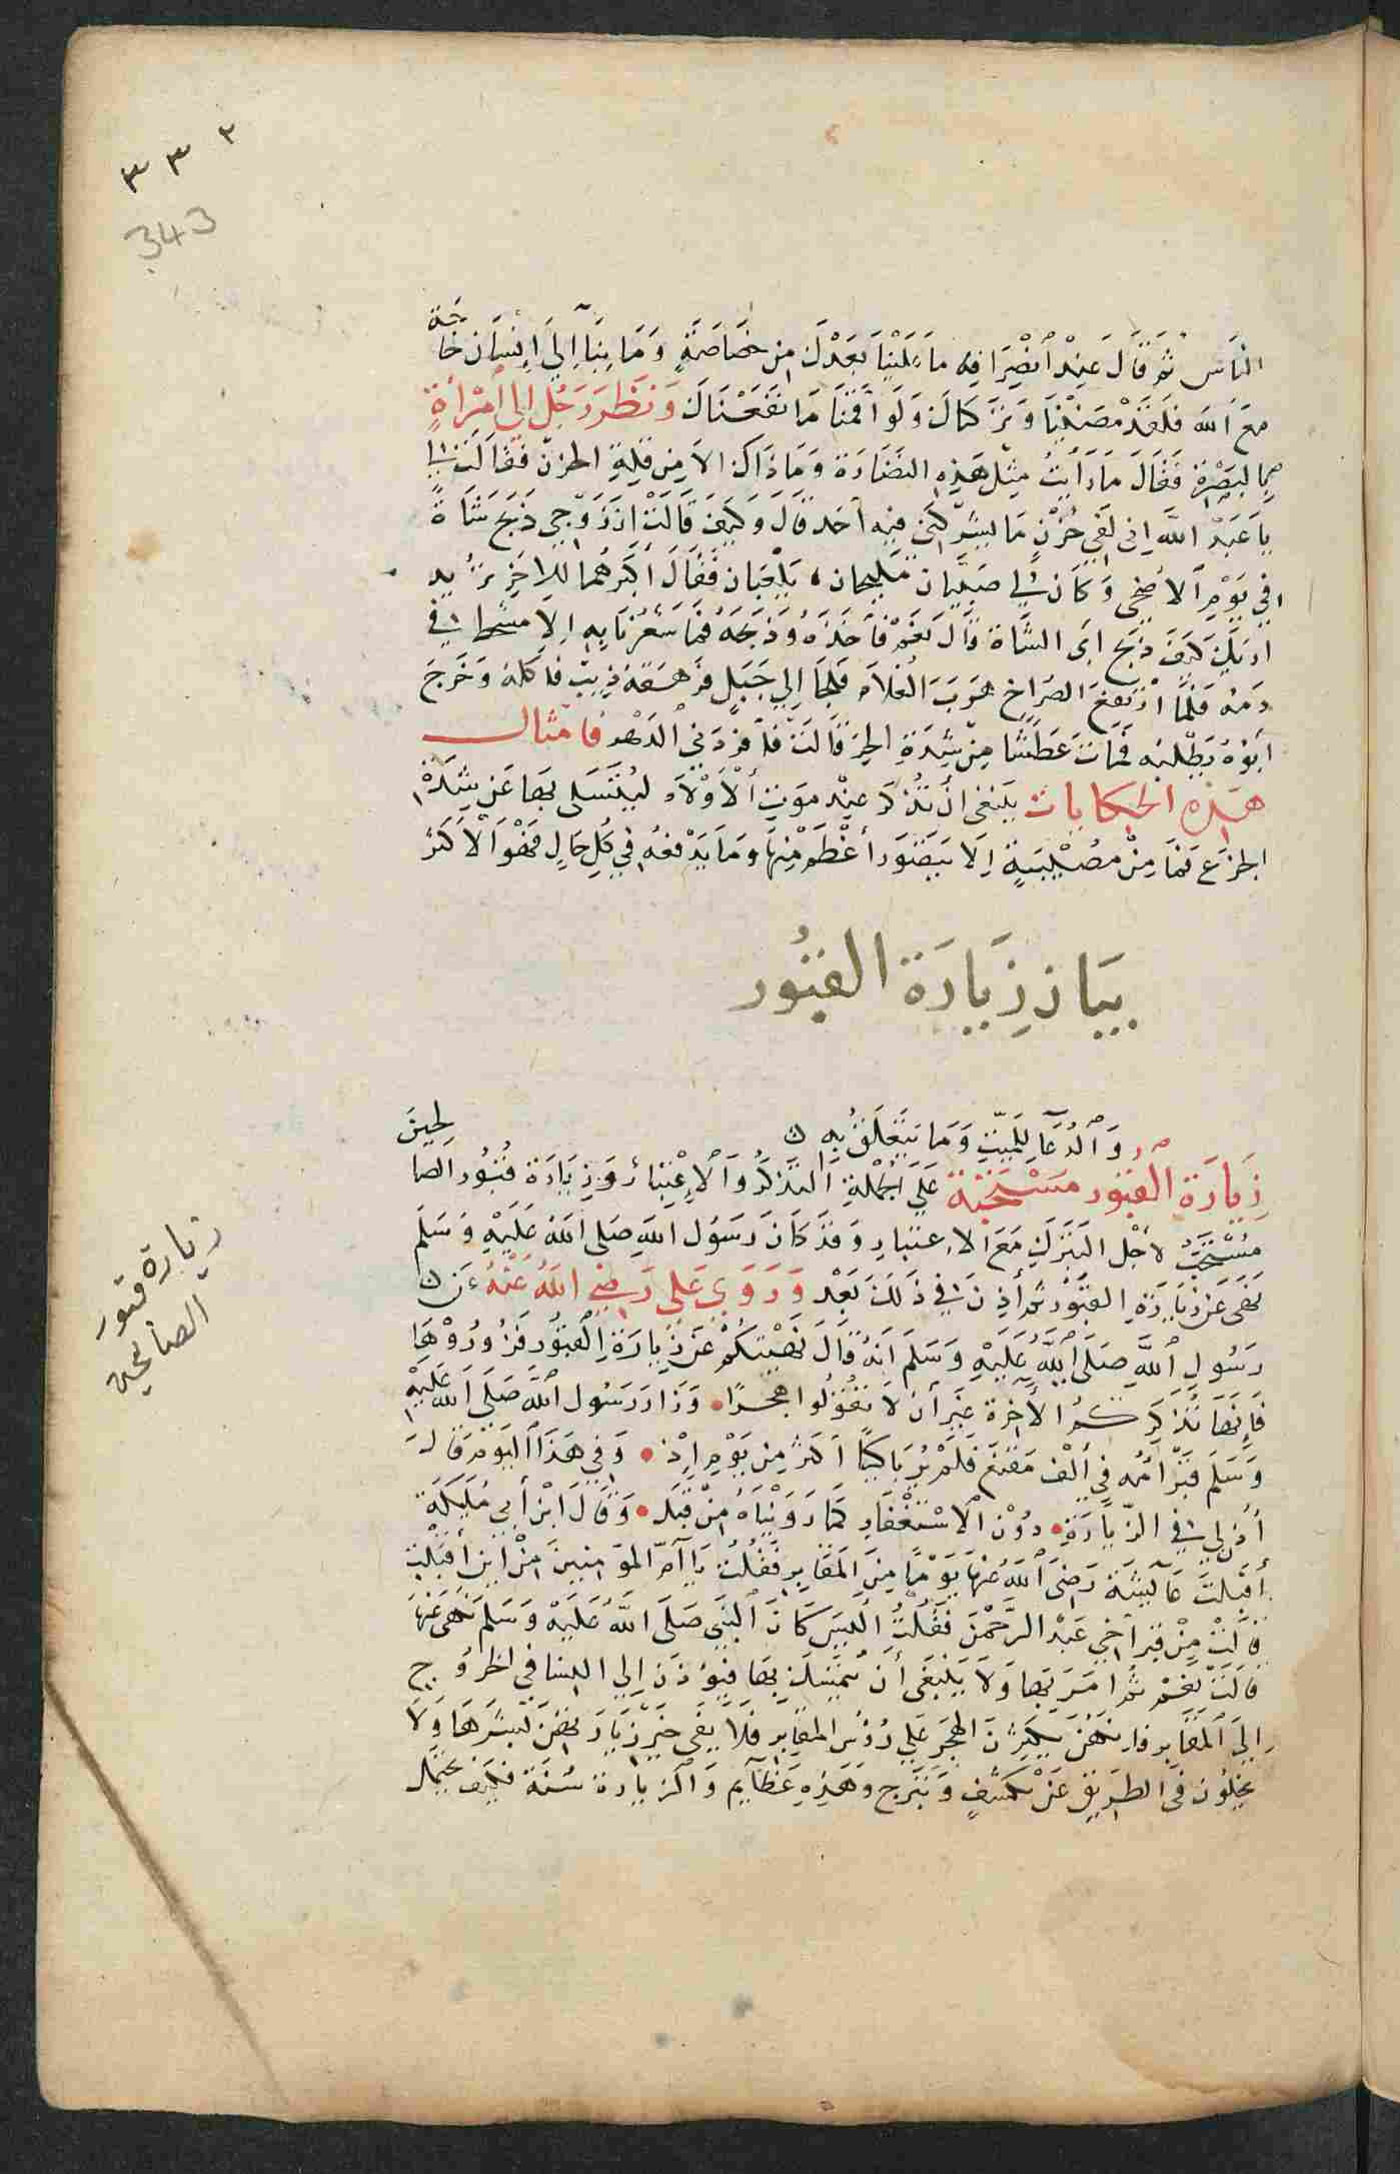 ٣٣٢
343
الناس ثم قال عند انصرافه ما علينا بعدك من خصاصة وما بنا إلى إنسان حاجة
مع الله فلقد مضينا وتركناك ولو أقمنا ما نفعناك ونظر رجل إلى امرأة
بالبصرة فقال ما رأيت مثل هذه النضارة وما ذاك الا من قلة الحزن فقالت
يا عبد الله اني لفي حزن ما يشركني فيه أحد قال وكيف قالت ان زوجي ذبح شاة
في يوم الأضحى وكان لي صبيان مليحان يلعبان فقال أكبرهما للاخر تريد
اريك كيف ذبح ابي الشاة قال نعم فأخذه وذبحه فما شعرنا به الا متشحطا في
دمه فلما ارتفع الصراخ هرب الغلام فلجا إلى جبل فرهقه ذيب فاكله وخرج
أبوه يطلبه فمات عطشا من شدة الحر قالت فافردني الدهر فامثال
هذه الحكايات ينبغي ان تذكر عند موت الأولاد ليتسلى بها عن شدة
الجزع فما من مصيبة الا يتصور أعظم منها وما يدفعه في كل حال فهو الأكثر
بيان زيارة القبور
والدعا للميت وما يتعلق به
زيارة القبور مستحبة على الجملة التذكر والاعتبار وزيارة قبور الصالحين
مستحب لأجل التبرك مع الاعتبار وقد كان رسول الله صلى الله عليه وسلم
نهى عن زيارة القبور ثم أذن في ذلك بعد وروى علي رضي الله عنه عن
رسول الله صلى الله عليه وسلم انه قال نهيتكم عن زيارة القبور فزوروها
فإنها تذكركم الآخرة غير أن لا تقولوا هجرا وزار رسول الله صلى الله عليه
وسلم قبر أمه في ألف مقنع فلم ير باكيا أكثر من يوم اذ وفي هذا اليوم قال
أذن لي في الزيارة دون الاستغفار كما رويناه من قبل وقال ابن أبي مليكة
أقبلت عايشة رضي الله عنها يوما من المقابر فقلت يا أم المومنين من أين أقبلت
قالت من قبر أخي عبد الرحمن فقلت أليس كان النبي صلى الله عليه وسلم نهى عنها
قالت نعم ثم امر بها ولا ينبغي أن يتمسك بها فيؤذن إلى النسا في الخروج
إلى المقابر فانهن يكثرن الهجر على رؤس المقابر فلا يفي خير زيارتهن بشرها ولا
يخلون في الطريق عن تكشف وتبرج وهذه عظايم والزيارة سنة فكيف يحتمل
زيارة قبور
الصالحين